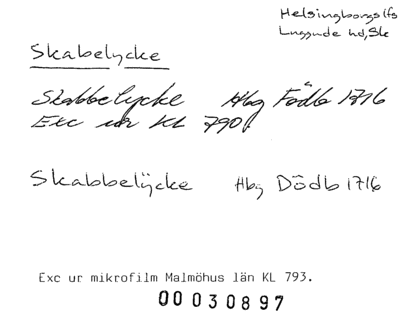 Helsingborgs lfs
Luggude hd, Sk
Skabelycke
Skabbelycke Hbg Födb 1716
Exc ur KL 790.
Skabbelÿcke Hbg Dödb 1716
Exc ur mikrofilm Malmöhus län KL 793.
00 030897